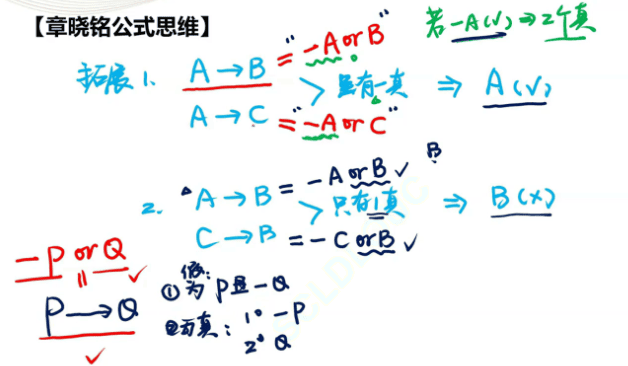 【章晓铭公式思维】
若-A(√)⇒2个真
拓展1. A→B="-A or B"
A→C="-A or C"
>只有一真 ⇒ A(√)
B
2. A→B=-A or B √
C→B=-C or B √
>只有1真 ⇒ B(×)
-P or Q √
P→Q √
假:
①为P且-Q
②为真: 1° -P
2° Q